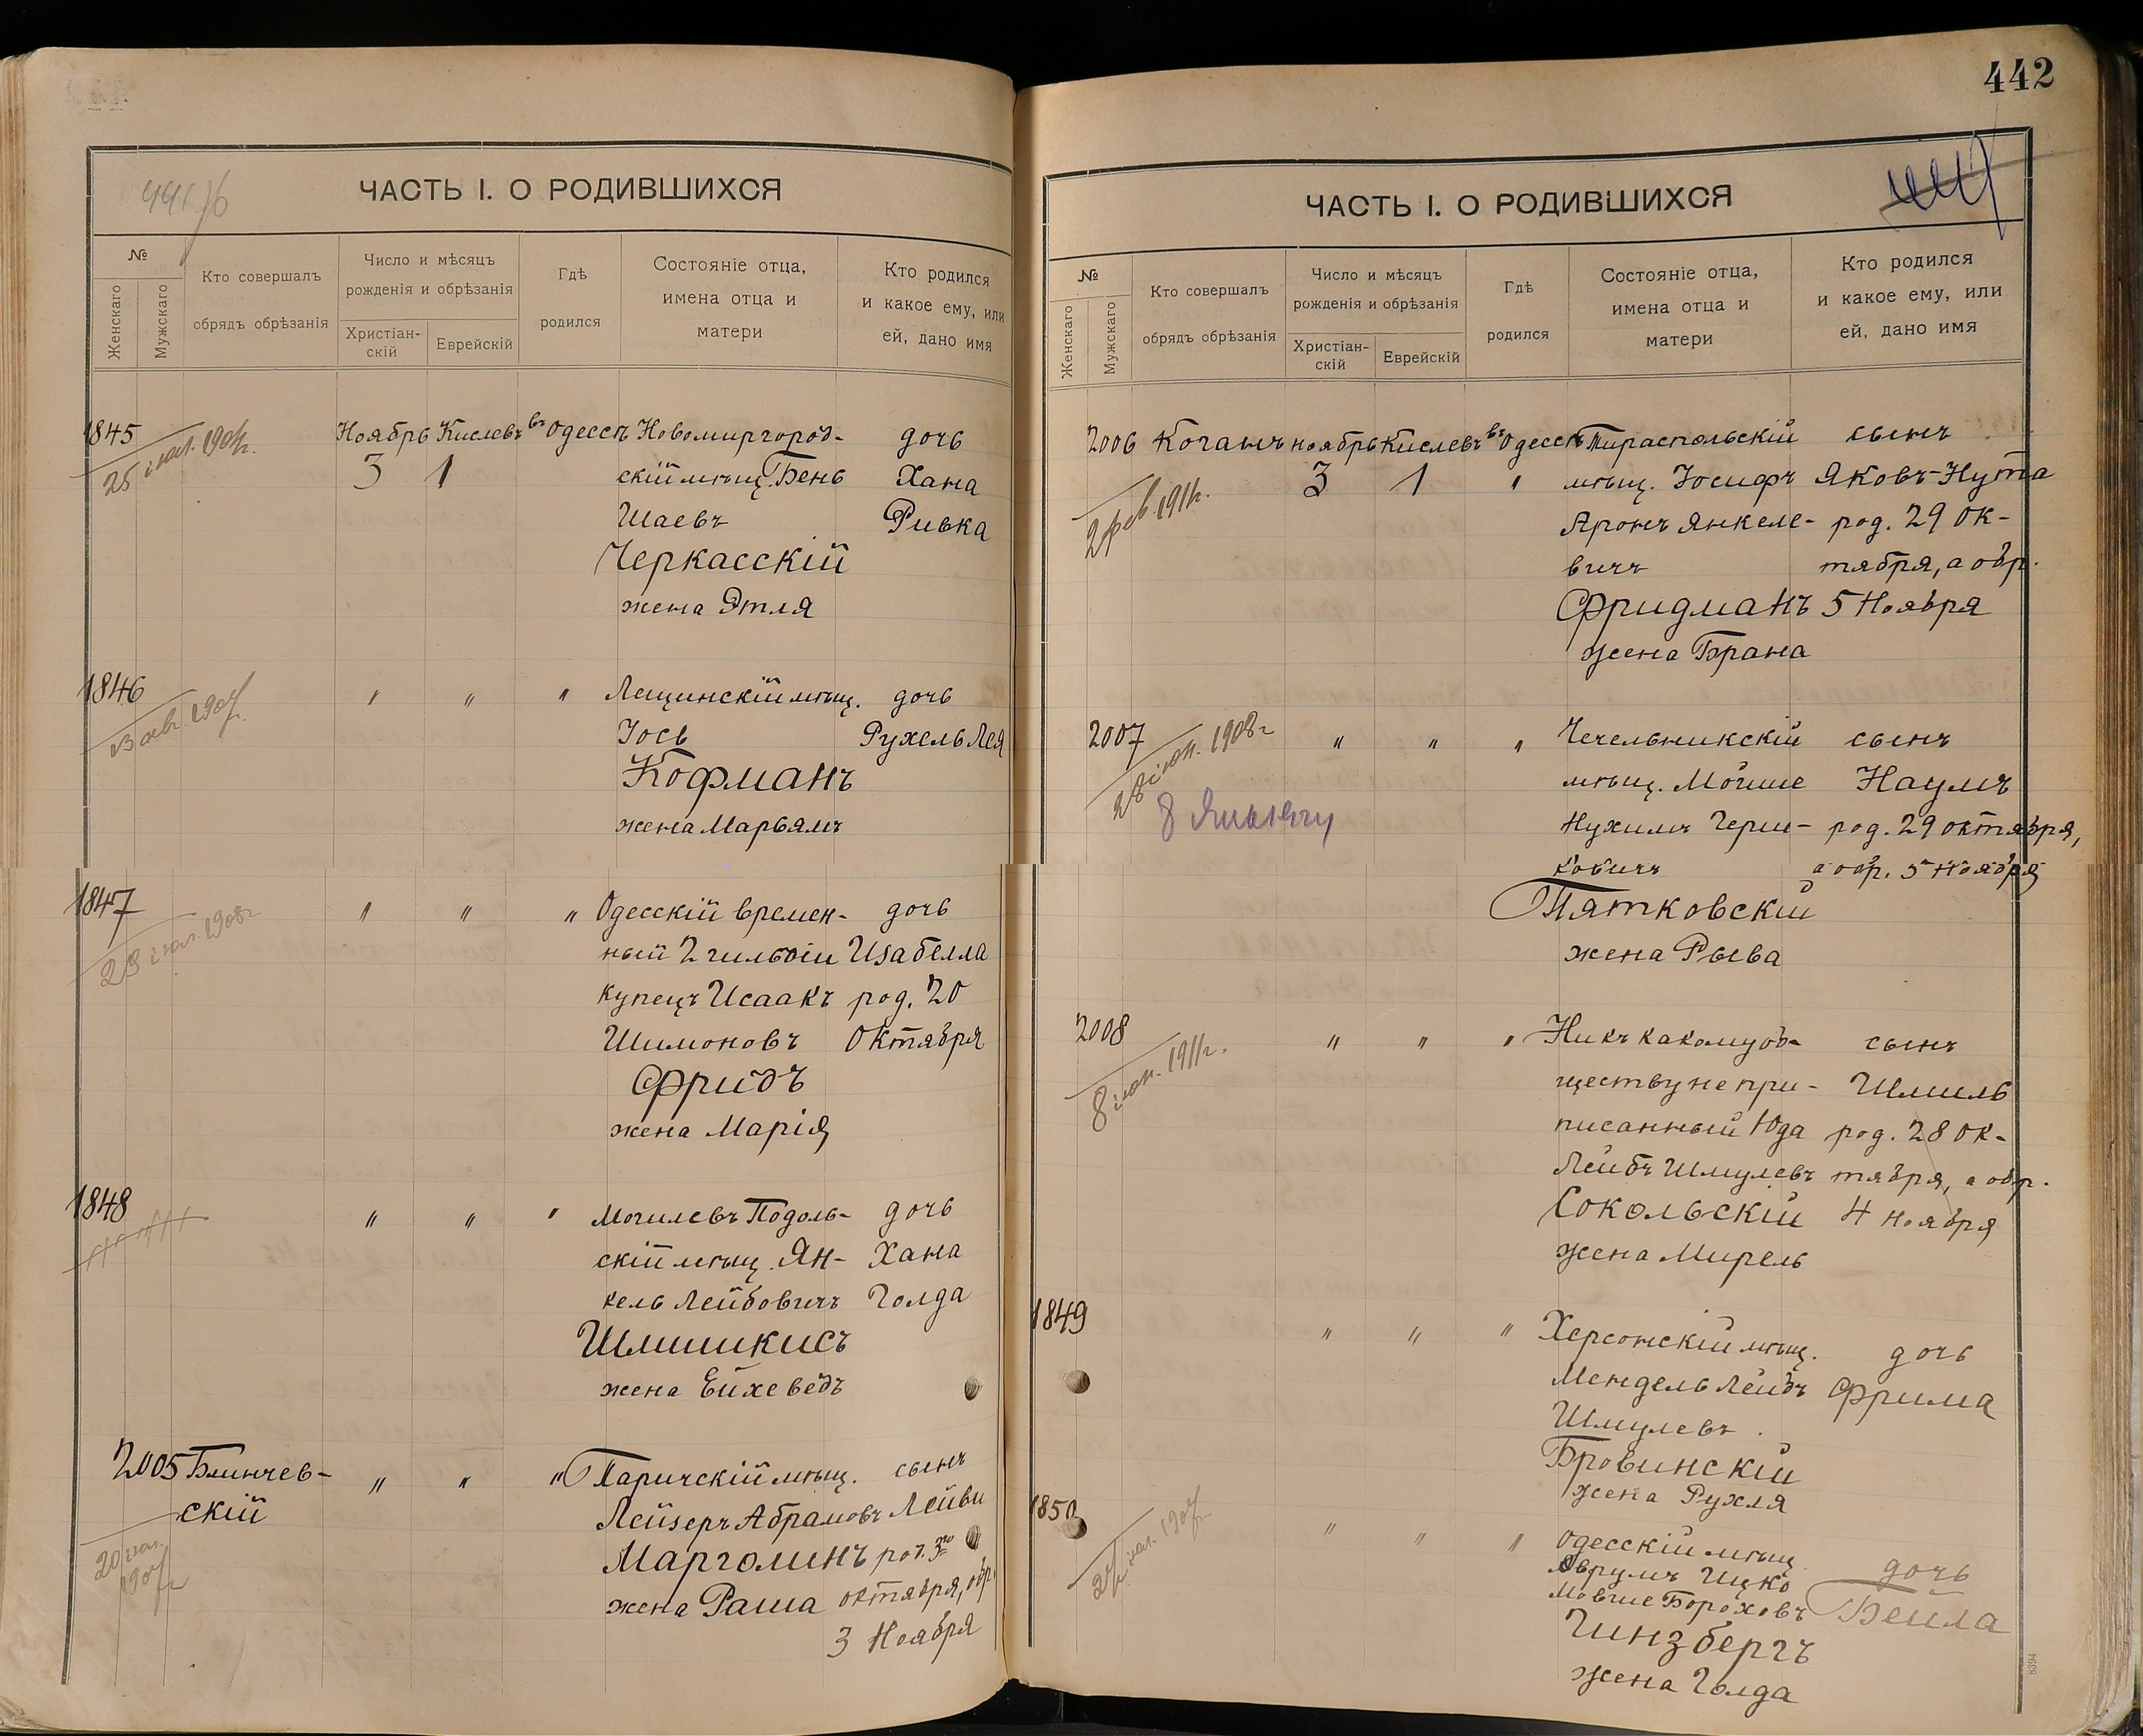 442
ЧАСТЬ I. О РОДИВШИХСЯ
№
Женскаго
Мужскаго
Кто совершалъ
обрядъ обрѣзанія
Число и мѣсяцъ
рожденія и обрѣзанія
Христіан-
скій
Еврейскій
Гдѣ
родился
Состояніе отца,
имена отца и
матери
Кто родился
и какое ему, или
ей, дано имя
1845 Ноябрь Кислевъ въ Одессѣ Новомиргород- дочь
25 іюл. 1907г. 3 1 скій мѣщ. Бень Хана
Шаевъ Ривка
Черкасскій
жена Этля
1846 " " " Лещинскій мѣщ. дочь
13 авг. 1907г. Іось Рухель Лея
Кофманъ
жена Марьямъ
1847 " " " Одесскій времен- дочь
23 іюл. 1908г. ный 2 гильдіи Изабелла
купецъ Исаакъ род. 20
Шимоновъ Октября
Фридъ
жена Марія
1848 " " " Могилевъ Подоль- дочь
скій мѣщ. Ян- Хана
кель Лейбовичъ Голда
Шлишкисъ
жена Ейхеведъ
2005 Блинчев- " " " Паричскій мѣщ. сынъ
скій Лейзеръ Абрамовъ Лейви
20 1907г. Марголинъ род. 3го
жена Раша октября, обр.
3 Ноября
ЧАСТЬ I. О РОДИВШИХСЯ
№
Женскаго
Мужскаго
Кто совершалъ
обрядъ обрѣзанія
Число и мѣсяцъ
рожденія и обрѣзанія
Христіан-
скій
Еврейскій
Гдѣ
родился
Состояніе отца,
имена отца и
матери
Кто родился
и какое ему, или
ей, дано имя
2006 Коганъ ноябрь Кислевъ въ Одессѣ Тираспольскій сынъ
2 фев. 1911г. 3 1 " мѣщ. Іосифъ Яковъ-Нута
Аронъ Янкеле- род. 29 Ок-
вичъ тября, а обр.
Фридманъ 5 Ноября
жена Брана
2007 " " " Чечельникскій сынъ
28 іюн. 1908г мѣщ. Мойше Наумъ
8 Нухимъ Герш- род. 29 октября,
ковичъ а обр. 5 Ноября
Пятковскій
жена Рыва
2008 " " " Никъ какому об- сынъ
8 іюн. 1911г. ществу не при- Шмиль
писанный Юда род. 28 Ок-
Лейбъ Шмулевъ тября, а обр.
Сокольскій 4 ноября
жена Мирель
1849 " " " Херсонскій мѣщ. дочь
Мендель Лейбъ Фрима
Шмулевъ
Бровинскій
жена Рухля
1850 " " " Одесскій мѣщ дочь
27 іюл. 1907г. Аврумъ Ицко Бейла
Мовше Бороховъ
Гинзбергъ
жена Голда
8394